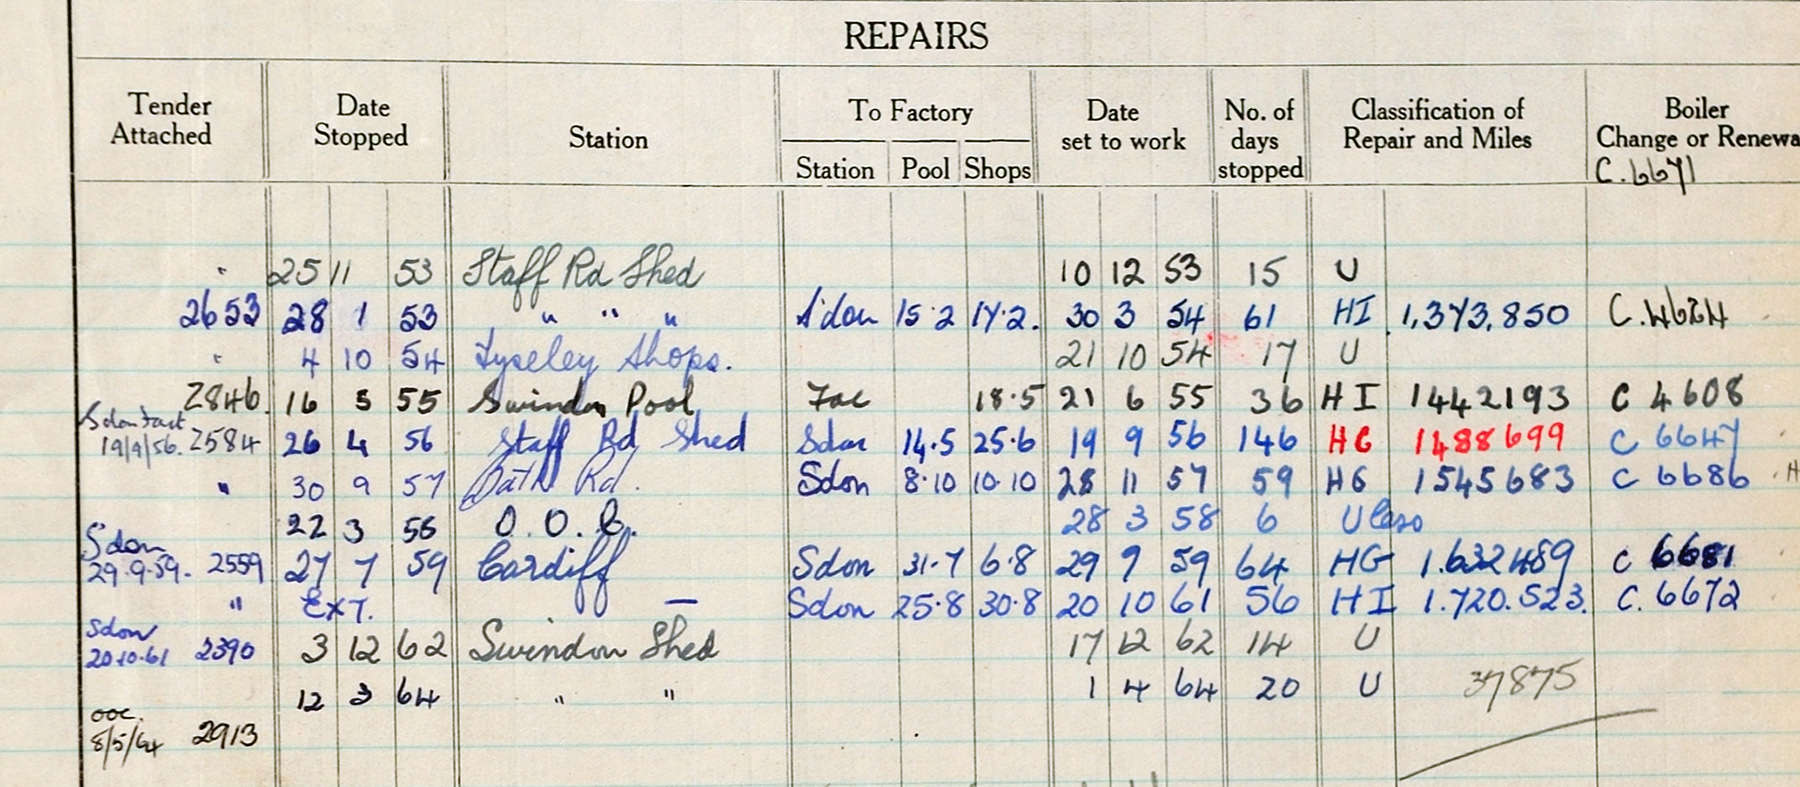 REPAIRS
Tender Attached | Date Stopped | Station | To Factory | Date set to work | No. of days stopped | Classification of Repair and Miles | Boiler Change or Renewa
Station | Pool | Shops
C.6671
" 25 11 53 Staff Rd Shed 10 12 53 15 U
2653 28 1 53 " " " S'don 15.2 17.2. 30 3 54 61 HI 1,373,850 C.4624
" 4 10 54 Tyseley Shops. 21 10 54 17 U
2846. 16 5 55 Swindon Pool Fac 18.5 21 6 55 36 HI 1442193 C 4608
Sdon Fact
19/9/56. 2584 26 4 56 Staff Rd Shed Sdon 14.5 25.6 19 9 56 146 HG 1488699 C 6647
" 30 9 57 Bath Rd. Sdon 8.10 10.10 28 11 57 59 HG 1545683 C 6686 H
22 3 58 O.O.C. 28 3 58 6 U
Sdon
29.9.59. 2559 27 7 59 Cardiff Sdon 31.7 6.8 29 9 59 64 HG 1.632489 C 6681
" EXT. — Sdon 25.8 30.8 20 10 61 56 HI 1.720.523. C. 6672
Sdon
20.10.61 2390 3 12 62 Swindon Shed 17 12 62 14 U
12 3 64 " " 1 4 64 20 U 37875
ooc.
8/5/64 2913